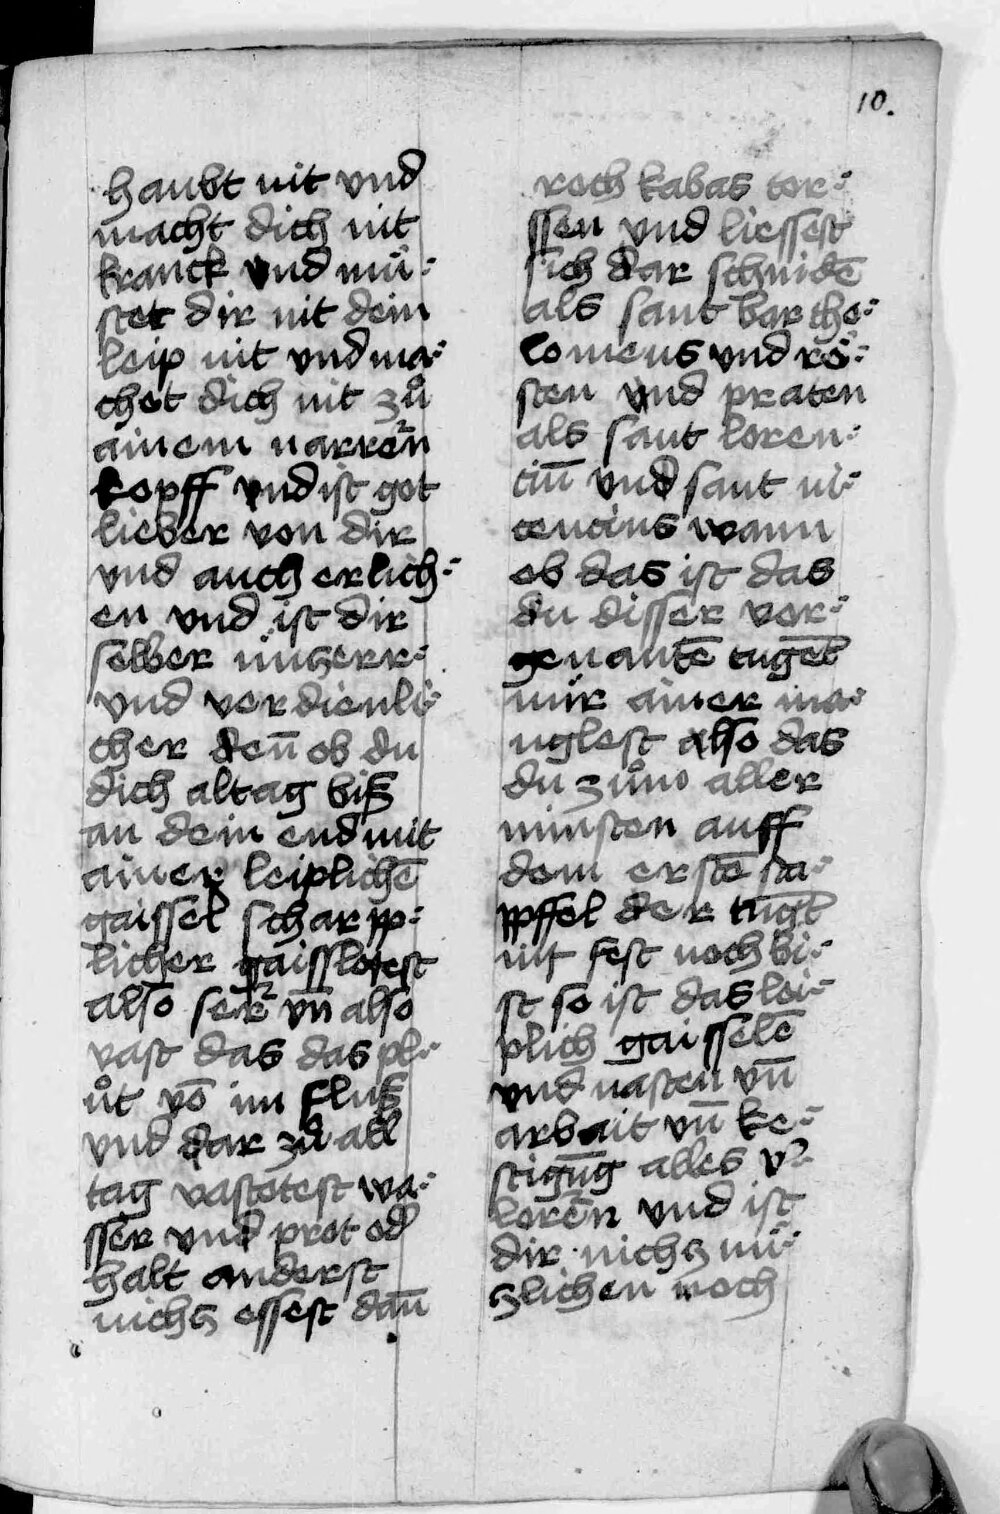 10.
haubt nit vnd
macht dich nit
kranck vnd mü⸗
stet dir nit dein
leip nit vnd ma⸗
chet dich nit zů
ainem narren̄
kopff vnd ist got
lieber von dir
vnd auch erlich⸗
en vnd ist dir
selber nüczerr⸗
vnd verdienli⸗
cher den̄ ob du
dich altag bisz
an dein end mit
ainer leiplichē
gaissel scharpp⸗
licher gaisslotest
also ser vn̄ also
vast das das pl⸗
ůt vō im flusz
vnd dar zů all
tag vastotest wa⸗
sser vnd prot od
halt anderst
nichcz essest dan̄
roch kabas tor⸗
ssen vnd liessest
sich dar schnidē
als sant barthe⸗
lomeus vnd rö⸗
sten vnd praten
als sant loren⸗
ciu̅ vnd sant vi⸗
cencius wann
ob das ist das
du disser vor⸗
genantē tugēt
nür ainer ma⸗
nglest also das
du zům aller
minsten auff
dem erstē sta⸗
pffel der tugēt
nit fest noch bi⸗
st so ist das lei⸗
plich gaisselē
vnd vasten vn̄
arbait vn̄ ke⸗
stigu̅g alles v̾⸗
loren̄ vnd ist
dir nichcz nü⸗
czlichen noch